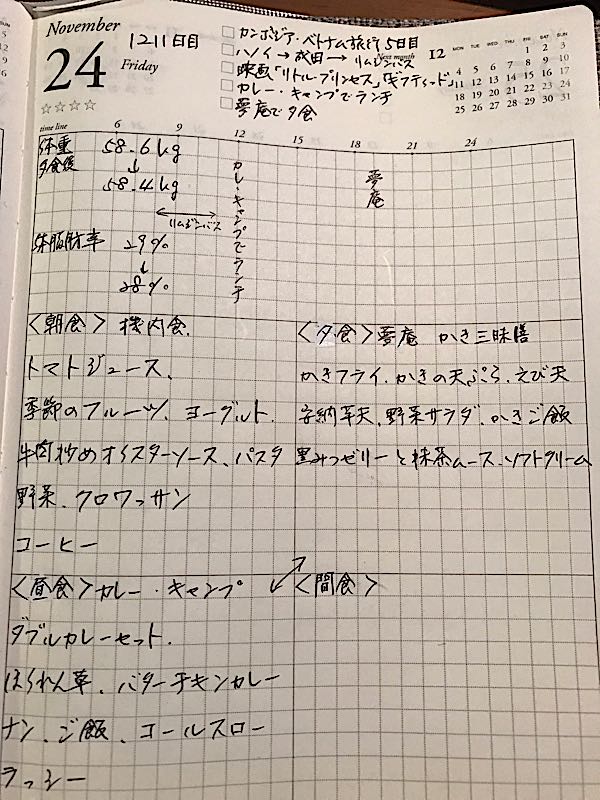 November
24
Friday
1211日目
カンボジア・ベトナム旅行5日目
ハノイ→成田→リムジンバス
映画「リトル・プリンセス」「ギフティッド」
カレー・キャンプでランチ
夢庵で夕食
Next month
12
MON TUE WED THU FRI SAT SUN
1 2 3
4 5 6 7 8 9 10
11 12 13 14 15 16 17
18 19 20 21 22 23 24
25 26 27 28 29 30 31
time line 6 9 12 15 18 21 24
体重 58.6kg
夕食後 ↓
58.4kg
リムジンバス
カレー・キャンプでランチ
夢庵
体脂肪率 29%
↓
28%
〈朝食〉 機内食、
トマトジュース、
季節のフルーツ、ヨーグルト、
牛肉炒めオイスターソース、パスタ
野菜、クロワッサン
コーヒー
〈夕食〉夢庵 かき三昧膳
かきフライ、かきの天ぷら、えび天
安納芋天、野菜サラダ、かきご飯
黒みつゼリーと抹茶ムース、ソフトクリーム
〈昼食〉カレー・キャンプ
ダブルカレーセット、
ほうれん草、バターチキンカレー
ナン、ご飯、コールスロー
ラッシー
〈間食〉